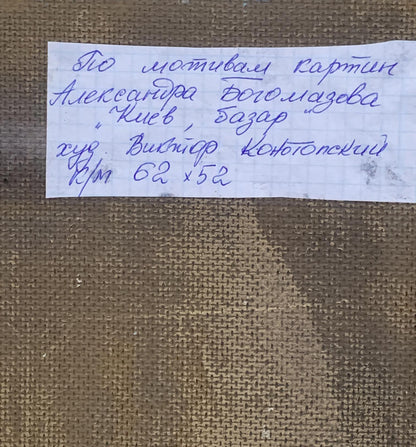 По мотивам картин
Александра Богомазова
"Киев, базар"
худ. Виктор Конотопский
к/м 62 x 52